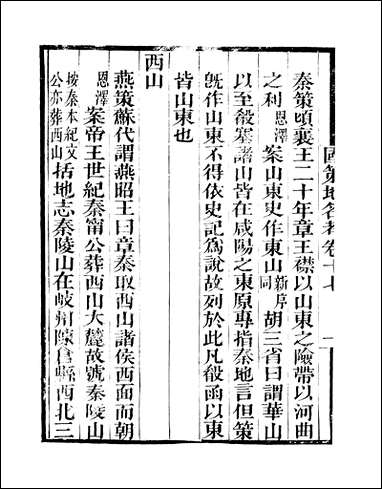 國策地名考卷十七
一
秦策頃襄王二十年章王襟以山東之險帶以河曲
之利恩澤案山東史作山東新序同胡三省曰謂華山
以至殽塞諸山皆在咸陽之東原專指秦地言但策
旣作山東不得依史記爲說故列於此凡殽函以東
皆山東也
西山
燕策蘇代謂燕昭王曰章秦取西山諸侯西面而朝
恩澤案帝王世紀秦甯公葬西山大麓故號秦陵山
按秦本紀文公亦葬西山括地志秦陵山在岐州陳倉縣西北三